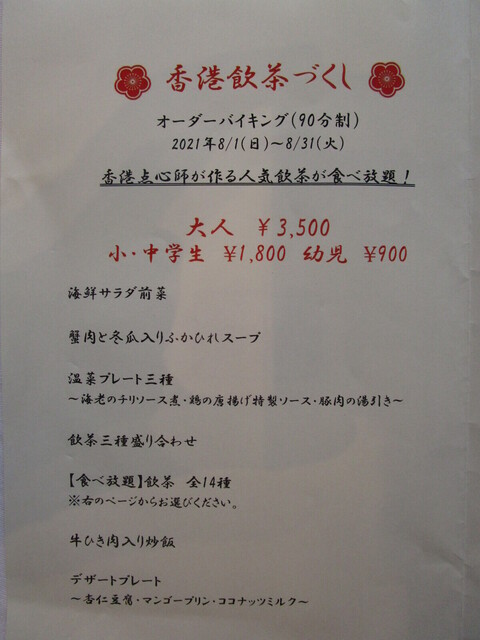 香港飲茶づくし
オーダーバイキング(90分制)
2021年8/1(日)~8/31(火)
香港点心師が作る人気飲茶が食べ放題!
大人 ¥3,500
小・中学生 ¥1,800 幼児 ¥900
海鮮サラダ前菜
蟹肉と冬瓜入りふかひれスープ
温菜プレート三種
~海老のチリソース煮・鶏の唐揚げ特製ソース・豚肉の湯引き~
飲茶三種盛り合わせ
【食べ放題】飲茶 全14種
※右のページからお選びください。
牛ひき肉入り炒飯
デザートプレート
~杏仁豆腐・マンゴープリン・ココナッツミルク~